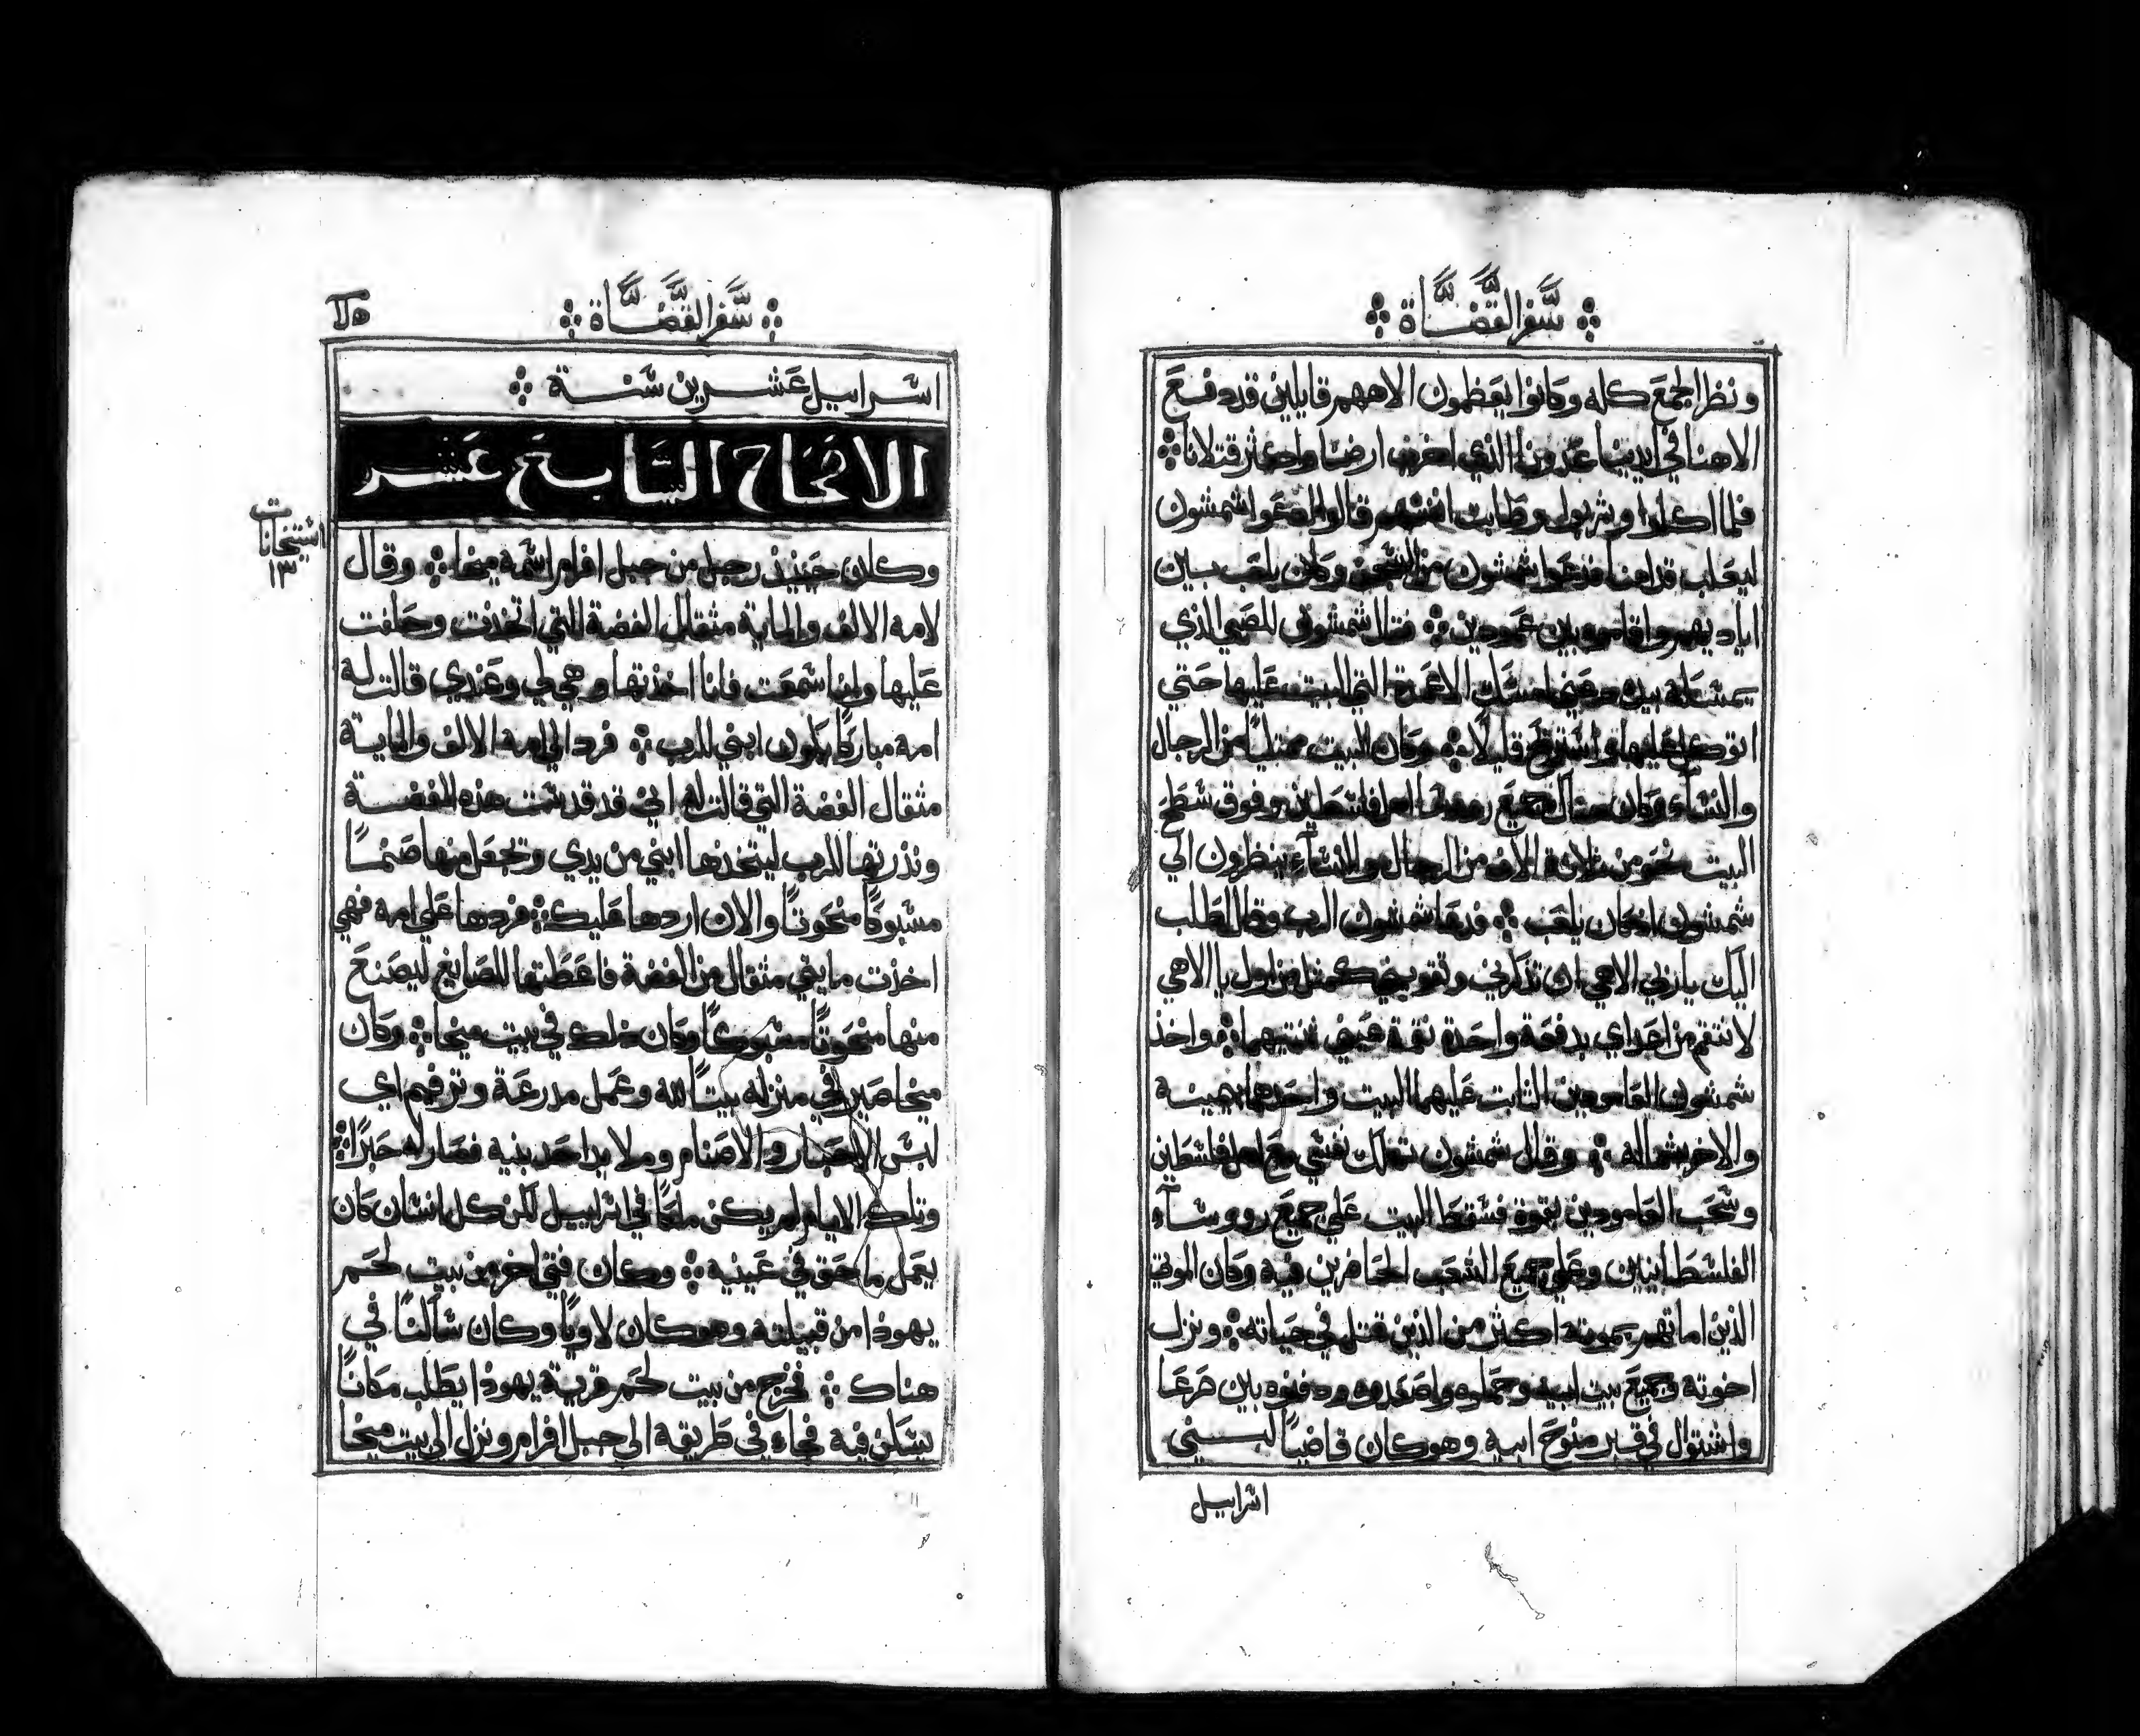 سفر القضاة
ونظر الجمع كله وكانوا يعظمون الاههم قايلين قد دفع
الاهنا في ايدينا عدونا الذي اخرب ارضنا واكثر قتلانا
فلما اكلوا وشربوا وطابت انفسهم قالوا ادعوا شمشون
ليعلب قدامنا فدعوا شمشون من السجن وكان يلعب بين
اياديهم واقاموه بين عمودين فقال شمشون للصبي الذي
يمسكه بيده دعني امسك الاعمدة التي البيت عليها حتي
اتوكل عليها واستريح قليلًا وكان البيت ممتليًا من الرجال
والنساء وكان هناك جميع روسا الفلسطين وفوق سطح
البيت نحو من ثلاثة الاف من الرجال والنساء ينظرون الي
شمشون اذ كان يلعب فدعا شمشون الرب وقال اطلب
اليك يا ربي الاهي ان تذكرني وتقويني كمثل من اول يا الاهي
لانتقم من اعداي بدفعة واحدة نقمة عيني ثنتيهما واخذ
شمشون العامودين الثابت عليهما البيت واحدها بيمينه
والاخر بشماله وقال شمشون تهلك نفسي مع اهل فلسطين
وسحب العامودين بقوة فسقط البيت علي جميع رووساء
الفلسطانيين وعلي جميع الشعب الحاضرين فيه وكان الموتي
الذين اماتهم بموته اكثر من الذين قتل في حياته ونزل
اخوته وجميع بيت ابيه وحملوه واصعدوه ودفنوه بين صرعا
واشتوال في قبر منوح ابيه وهو كان قاضيًا لبني
اسراييل
سفر القضاة
اسراييل عشرين سنة
الاصحاح السابع عشر
استيخانات
١٣
وكان حينيذ رجل من جبل افرام اسمه ميخا وقال
لامه الالف والماية مثقال الفضة التي اتخذت وحلفت
عليها وانا سمعت فانا اخذتها وهي لي وعندي قالت له
امه مباركًا يكون ابني للرب فرد الي امه الالف والماية
مثقال الفضة التي قالت له اني قد قدست هذه الفضة
ونذرتها للرب ليتخذها ابني من يدي وتجعل منها صنمًا
مسبوكًا منحوتًا والان اردها عليك فردها علي امه فهي
اخذت مايتي مثقال من الفضة فاعطتها للصايغ ليصنع
منها منحوتًا مسبوكًا وكان ذلك في بيت ميخا وكان
ميخا صير في منزله بيتًا لله وعمل مدرعة وترفيم اي
لبس الاحبار والاصنام وملا يد احد بنيه فصار له حبرًا
وتلك الايام لم يكن ملكًا في اسراييل لكن كل انسان كان
يعمل ما حق في عينيه وكان فتي اخر من بيت لحم
يهوذا من قبيلته وهو كان لاويًا وكان ساكنًا في
هناك فخرج من بيت لحم قرية يهوذا يطلب مكانًا
يسكن فيه فجاء في طريقه الي جبل افرام ونزل الي بيت ميخا